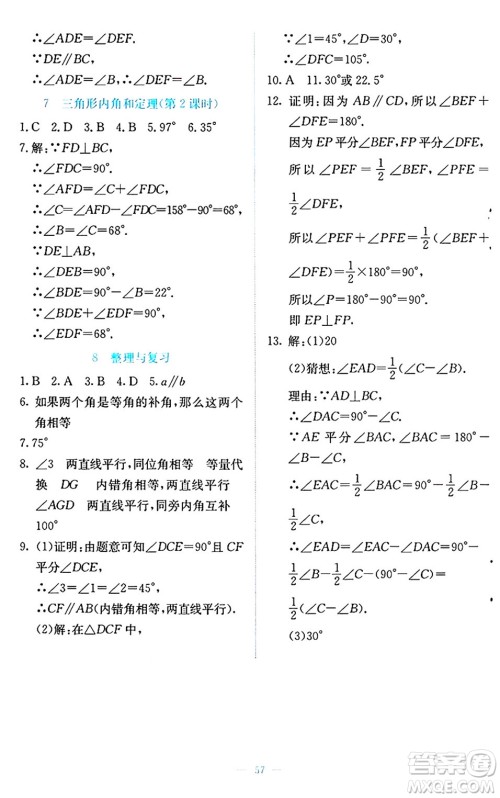 ∴∠ADE=∠DEF.
∵DE∥BC,
∴∠ADE=∠DEF=68°.
7 三角形内角和定理(第2课时)
1.C 2.D 3.D 4.B 5.97° 6.35°
7.解:∵FD⊥BC,
∴∠FDC=90°.
∵∠AFD=∠C+∠FDC,
∴∠C=∠AFD-∠FDC=158°-90°=68°.
∴∠B=∠C=68°.
∵DE⊥AB,
∴∠DEB=90°.
∴∠BDE=90°-∠B=22°.
又∵∠BDE+∠EDF=90°,
∴∠EDF=68°.
8 整理与复习
1.B 2.A 3.B 4.D 5.a∥b
6.如果两个角是等角的补角,那么这两个
角相等
7.75°
8.∠3 两直线平行,同位角相等 等量代
换 DG 内错角相等,两直线平行
∠AGD 两直线平行,同旁内角互补
100°
9.(1)证明:由题意可知∠DCE=90°且CF
平分∠DCE,
∴∠3=∠1=∠2=45°,
∴CF∥AB(内错角相等,两直线平行).
(2)解:在△DCF中,
∵∠1=45°,∠D=30°,
∴∠DFC=105°.
10.A 11.30°或22.5°
12.证明:因为AB∥CD,所以∠BEF+
∠DFE=180°.
因为EP平分∠BEF,FP平分∠DFE,
所以∠PEF=1/2∠BEF,∠PFE=
1/2∠DFE,
所以∠PEF+∠PFE=1/2(∠BEF+
∠DFE)=1/2×180°=90°.
所以∠P=180°-90°=90°.
即EP⊥FP.
13.解:(1)20
(2)猜想:∠EAD=1/2(∠C-∠B).
理由:∵AD⊥BC,
∴∠ADC=90°.
∴∠CAD=90°-∠C.
∵AE平分∠BAC,
∴∠CAE=1/2∠BAC=90°-1/2∠B-
1/2∠C.
∴∠EAD=∠CAE-∠CAD=90°-
1/2∠B-1/2∠C-(90°-∠C)=1/2(∠C-
∠B).
(3)30°
57
答案圈